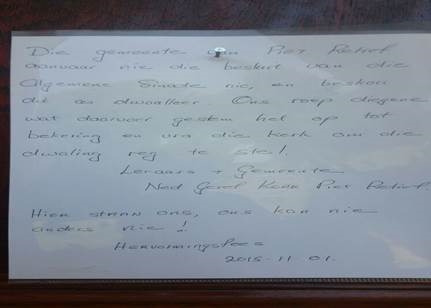 Die gemeente van Piet Retief
aanvaar nie die besluit van die
Algemene Sinode nie, en beskou
dit as dwaalleer. Ons roep diegene
wat daarvoor gestem het op tot
bekering en vra die kerk om die
dwaling reg te stel!
Leraars + Gemeente
Ned Geref Kerk Piet Retief.
Hier staan ons, ons kan nie
anders nie!
Hervormingsfees
2015-11-01.